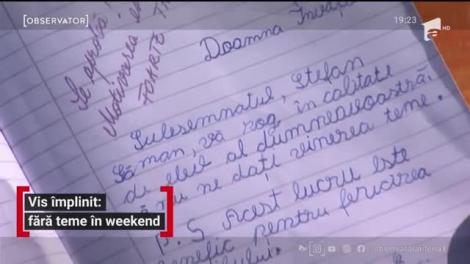 [OBSERVATOR]
19:23
HD
Se aprobă!
Motivarea e
FOARTE
Doamna Învăță
Subsemnatul, Ștefan
Șaman, vă rog, în calitate
de elev al dumneavoastră,
să nu ne dați vinerea teme.
P.S Acest lucru este
benefic pentru fericirea
Vis împlinit:
fără teme în weekend